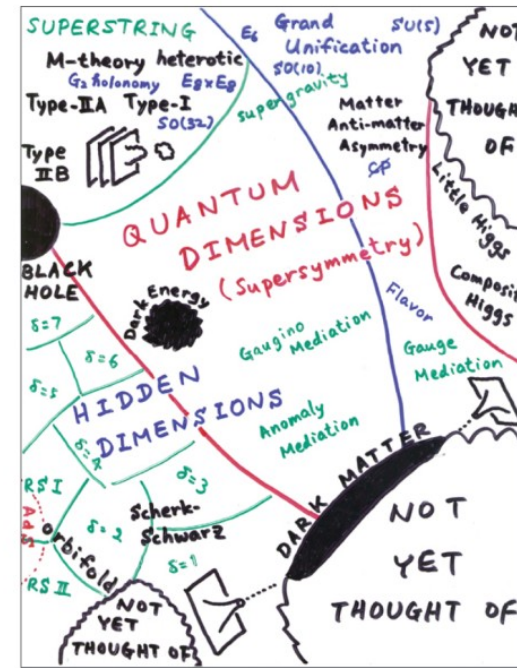 SUPERSTRING
M-theory heterotic
G2 holonomy E8xE8
Type-IIA Type-I
SO(32)
Type
IIB
E6 Grand
Unification
SU(5)
SO(10)
supergravity
Matter
Anti-matter
Asymmetry
CP
NOT
YET
THOUGHT
OF
Little Higgs
Composit
Higgs
QUANTUM
DIMENSIONS
(Supersymmetry)
BLACK
HOLE
Dark Energy
Gaugino
Mediation
Flavor
Gauge
Mediation
δ=7
δ=6
δ=5
HIDDEN
DIMENSIONS
Anomaly
Mediation
δ=4
δ=3
DARK MATTER
RS I
AdS
orbifold
δ=2
Scherk-
Schwarz
δ=1
RS II
NOT
YET
THOUGHT OF
NOT
YET
THOUGHT OF